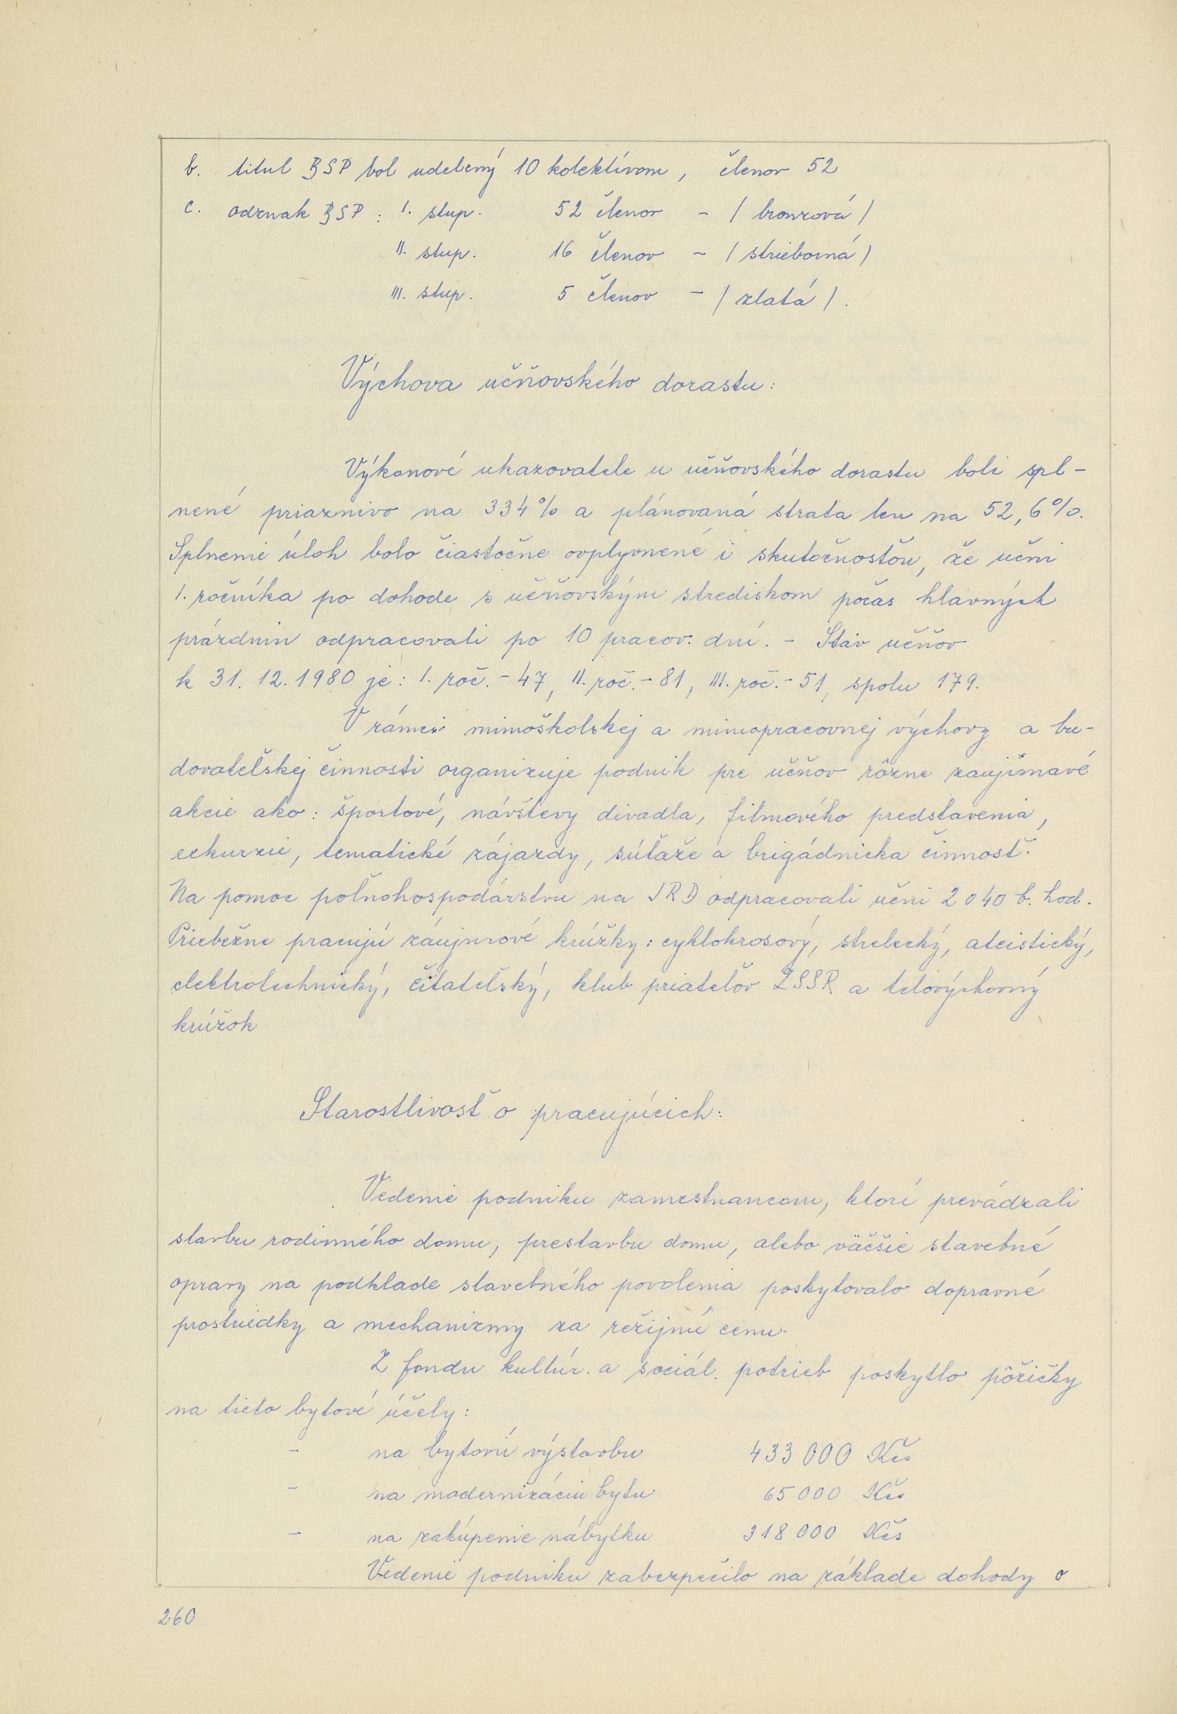 b. titul BSP bol udelený 10 kolektívom, členov 52
c. odznak BSP: I. stup. 52 členov - / bronzová /
II. stup. 16 členov - / strieborná /
III. stup. 5 členov - / zlatá /.
Výchova učňovského dorastu:
Výkonové ukazovatele u učňovského dorastu boli spl-
nené priaznivo na 334% a plánovaná strata len na 52,6%.
Splnenie úloh bolo čiastočne ovplyvnené i skutočnosťou, že učni
I. ročníka po dohode s učňovským strediskom počas hlavných
prázdnin odpracovali po 10 pracov. dní. - Stav učňov
k 31. 12. 1980 je: I. roč. - 47, II. roč. - 81, III. roč. - 51, spolu 179.
V rámci mimoškolskej a mimopracovnej výchovy a bu-
dovateľskej činnosti organizuje podnik pre učňov rôzne zaujímavé
akcie ako: športové, návštevy divadla, filmového predstavenia,
exkurzie, tematické zájazdy, súťaže a brigádnicka činnosť.
Na pomoc poľnohospodárstvu na JRD odpracovali učni 2 040 b. hod.
Priebežne pracujú záujmové krúžky: cyklokrosový, strelecký, ateistický,
elektrotechnický, čitateľský, klub priateľov ZSSR a telovýchovný
krúžok
Starostlivosť o pracujúcich:
Vedenie podniku zamestnancom, ktorí prevádzali
stavbu rodinného domu, prestavbu domu, alebo väčšie stavebné
opravy na podklade stavebného povolenia poskytovalo dopravné
prostriedky a mechanizmy za režijnú cenu.
Z fondu kultúr. a sociál. potrieb poskytlo pôžičky
na tieto bytové účely:
- na bytovú výstavbu 433 000 Kčs
- na modernizáciu bytu 65 000 Kčs
- na zakúpenie nábytku 318 000 Kčs
Vedenie podniku zabezpečilo na základe dohody o
260